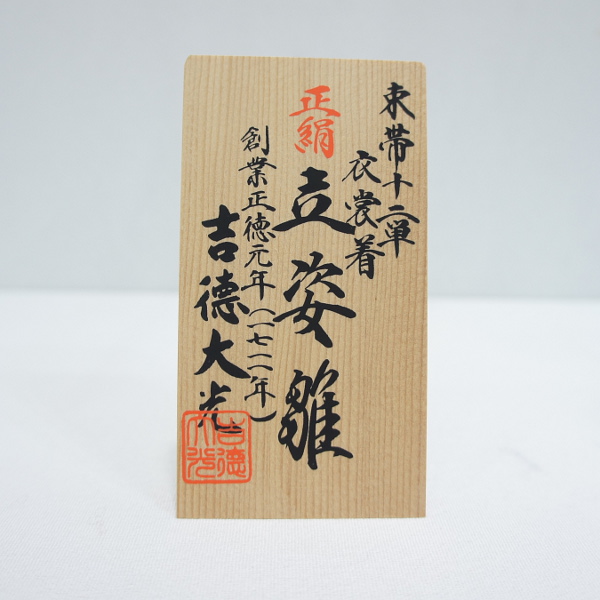 束帯十二単
衣裳着
正絹
立姿雛
創業正徳元年(一七一一年)
吉德大光
吉德大光